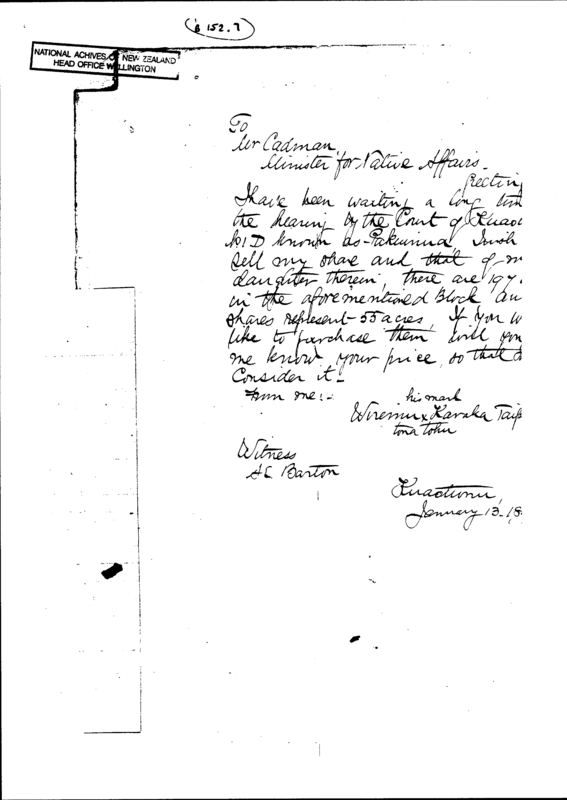 B 152.7
NATIONAL ACHIVES OF NEW ZEALAND
HEAD OFFICE WELLINGTON
To
Mr Cadman,
Minister for Native Affairs.
I have been waiting a long
the hearing by the Court of Kuao
No 1 D known as I wish
sell my share and that of m
daughter therein, there are
in the aforementioned Block an
shares represent 55 acres. If you w
like to purchase them will you
me know your price, so that
Consider it.
from me:-
his mark
Wiremu x Karaka Taip
tona tohu
Witness
Barton
Kuaotunu,
January 13 - 18